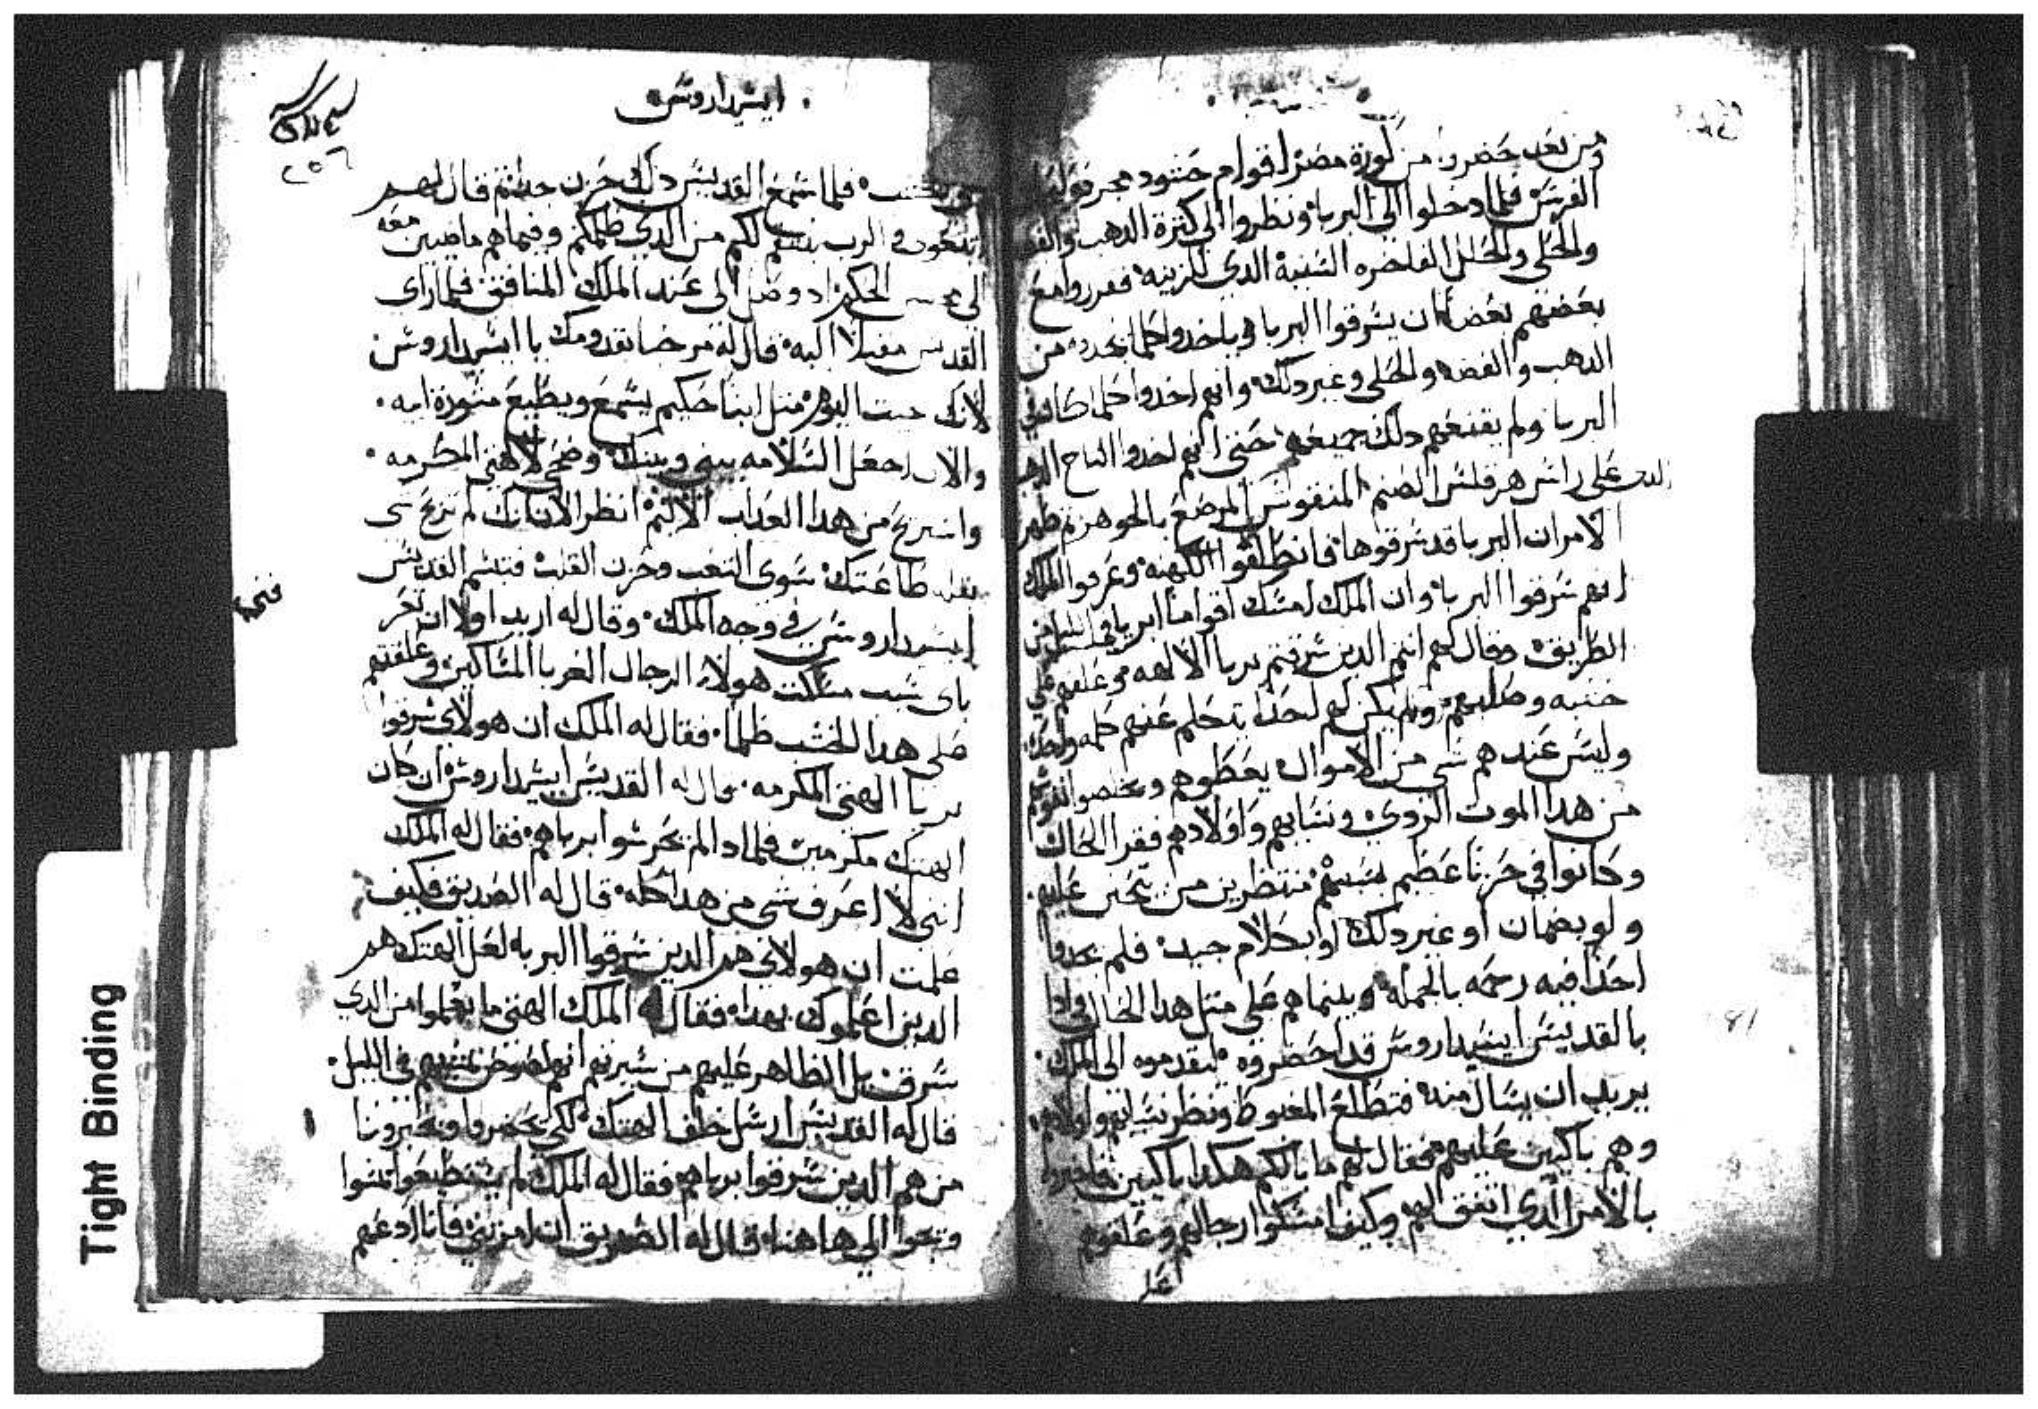 ومن بعد حضروا من كورة مصر اقوام جنود
الفرس فلما دخلوا الى البربا ونظروا الى كثرة الدهب والفضه
والحلى والحلل الفاخره السنية الدى للزينه فقرروا مع
بعضهم بعضا ان يسرقوا البربا وياخدوا كلما يجدوه من
الدهب والفضه والحلى وغير دلك وانهم اخدوا كلما كان في
البربا ولم يقنعهم دلك جميعه حتى انهم اخدوا التاج الدهب
الدى على راس هرقلس الصنم المنقوش المرصع بالجوهر فظهر
الامر ان البربا قد سرقوها فانطلقوا الكهنه وعرفوا الملك
انهم سرقوا البربا وان الملك امسك اقواما ابريا في
الطريق وقال لهم انتم الدين سرقتم بربا الالهه وعلقهم على
خشبه وصلبهم ولم يكن لهم احدا يتكلم عنهم كلمه واحده
وليس عندهم شي من الاموال يعطوهم ويخلصوا نفوسهم
من هدا الموت الردي ونسايهم واولادهم فقرا الحال
وكانوا في حزنا عظيم بسببهم منتظرين من يتحنن عليهم
ولو بضمان او غير دلك او بكلام جيد فلم يجدوا
احدا فيه رحمه بالجمله وبينماهم على متل هدا الحال وادا
بالقديس ايسيداروس قد احضروه ليقدموه الى الملك
يريد ان يسال منه فتطلع المغبوط ونظر نسايهم واولادهم
وهم باكيين عليهم فقال لهم ما بالكم هكدا باكيين فاخبروه
بالامر الدي اتفق لهم وكيف امسكوا رجالهم وعلقوهم
على
ايسيداروس
٢٥٦
فلما سمع القديس دلك حزن جدا ثم قال لهم
في الرب ينتقم لكم من الدي ظلمكم وفيماهم ماضيين معه
الى مجلس الحكم اد وصل الى عند الملك المنافق فلما راى
القديس مقبلا اليه قال له مرحبا بقدومك يا ايسيداروس
لانك جيت اليوم متل ابنا حكيم يسمع ويطيع مشورة ابيه
والان اجعل السلامه بيني وبينك وضحي لالهتي المكرمه
واستريح من هدا العداب الاليم انظر الان انك لم تربح شي
بقلة طاعتك سوى التعب وحزن القلب فتبسم القديس
ايسيداروس في وجه الملك وقال له اريد اولا ان تخبر
باى سبب مسكت هولاء الرجال الغربا المساكين وعلقتهم
على هدا الخشب ظلما فقال له الملك ان هولاى سرقوا
بربا الهتي المكرمه قال له القديس ايسيداروس ان كان
الهتك مكرمين فلمادا لم يحرسوا برباهم فقال له الملك
انني لا اعرف شي من هدا كله قال له الصديق فكيف
علمت ان هولاى هم الدين سرقوا البربا لعل الهتك هم
الدين اعلموك بهدا فقال له الملك الهتي ما يعلموا من الدي
سرق بل الظاهر عليهم من سيرتهم انهم لصوص في الليل
قال له القديس ارسل خلف الهتك لكي يحضروا ويخبرونا
من هم الدين سرقوا برباهم فقال له الملك لم يستطيعوا يمشوا
ويجوا الى هاهنا قال له الصديق ان امرتني فانا ادعيهم
Tight Binding